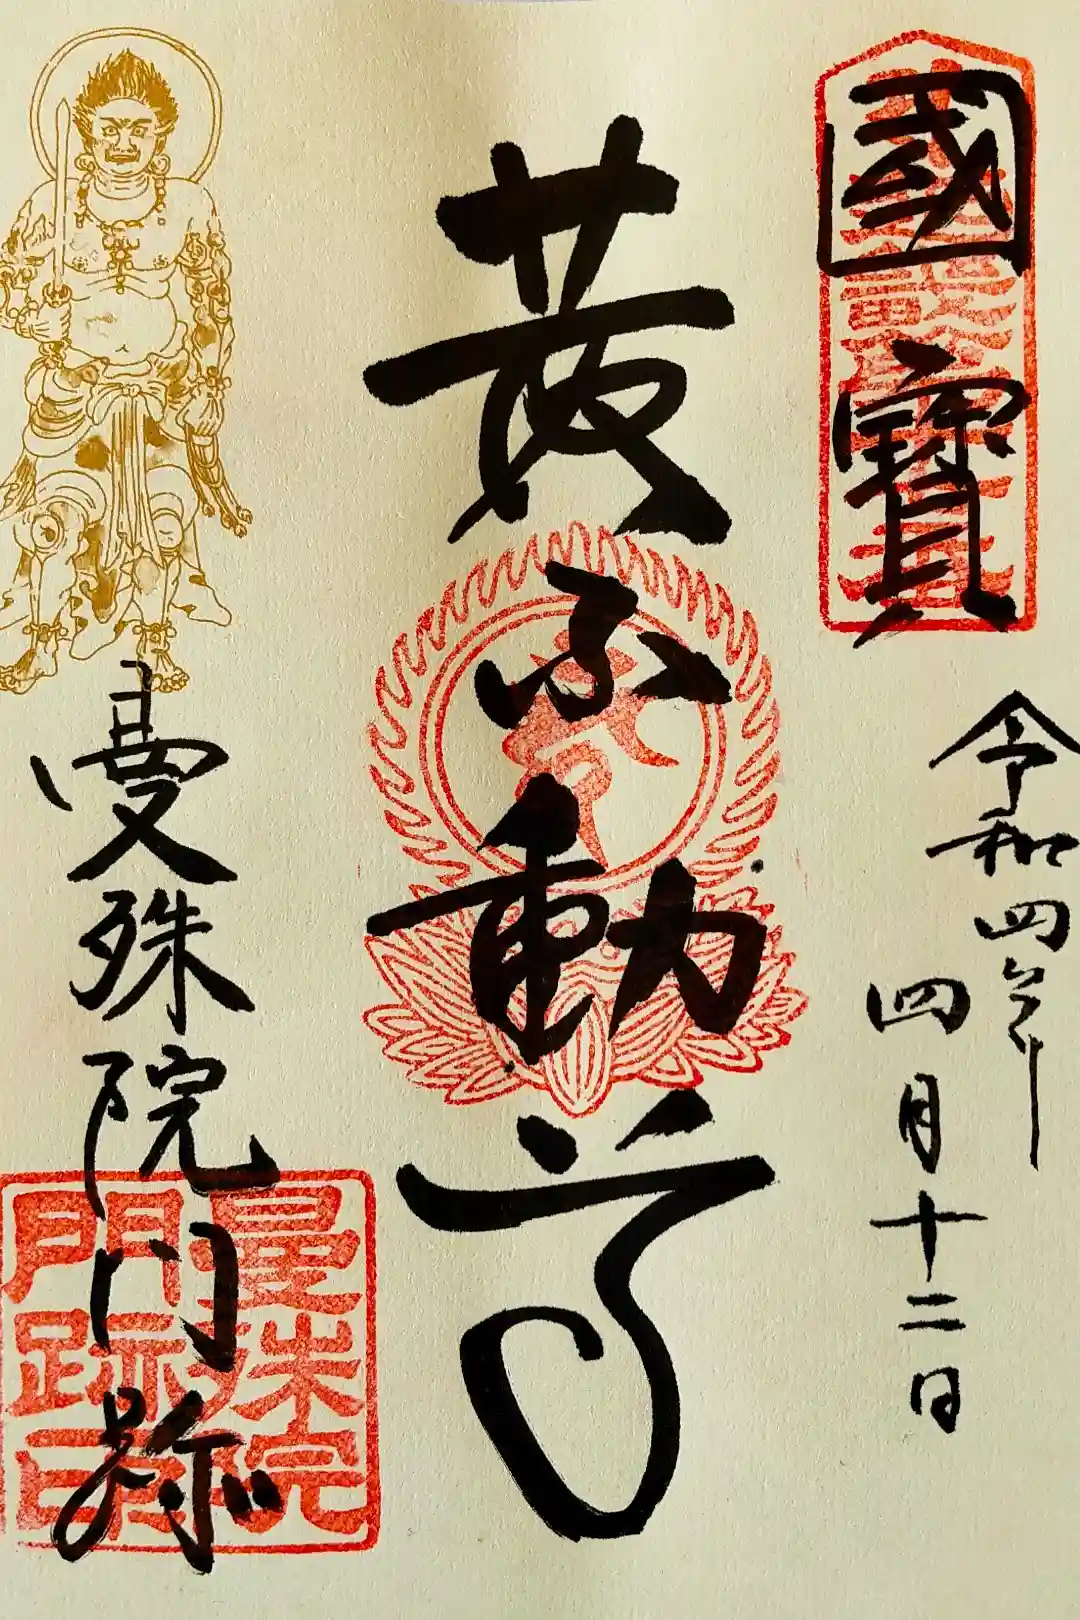 國寶
令和四年
四月十二日
黄不動尊
曼殊院門跡
曼殊院
門跡印